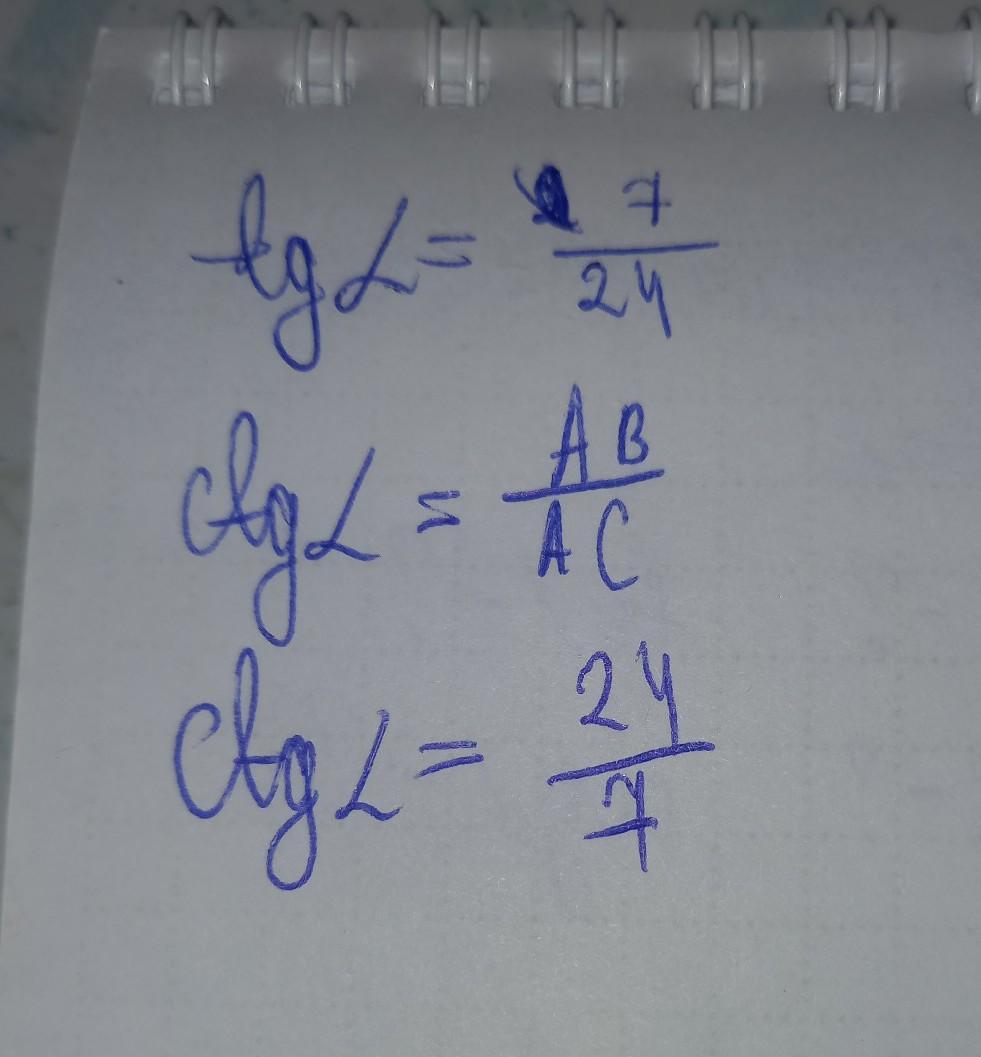 tg α = 7/24
ctg α = AB/AC
ctg α = 24/7